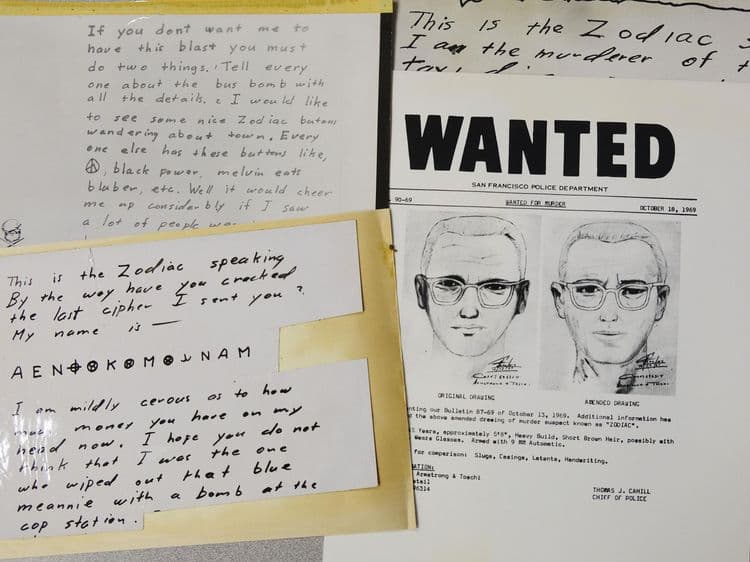 If you dont want me to
have this blast you must
do two things. Tell every
one about the bus bomb with
all the details. I would like
to see some nice Zodiac butons
wandering about town. Every
one else has these buttons like,
☮, black power, melvin eats
bluber, etc. Well it would cheer
me up considerbly if I saw
a lot of people
This is the Zodiac
I am the murderer of
This is the Zodiac speaking
By the way have you cracked
the last cipher I sent you?
My name is —
A E N ⌖ ⊗ K ⊗ M ⊗ ⅃ N A M
I am mildly cerous as to how
much money you have on my
head now. I hope you do not
think that I was the one
who wiped out that blue
meannie with a bomb at the
cop station.
WANTED
SAN FRANCISCO POLICE DEPARTMENT
90-69 WANTED FOR MURDER OCTOBER 18, 1969
ORIGINAL DRAWING AMENDED DRAWING
nting our Bulletin 87-69 of October 13, 1969. Additional information has
the above amended drawing of murder suspect known as "ZODIAC".
Years, approximately 5'8", Heavy Build, Short Brown Hair, possibly with
Wears Glasses. Armed with 9 MM Automatic.
for comparison: Slugs, Casings, Latents, Handwriting.
ATION:
Armstrong & Toschi
etail
96314
THOMAS J. CAHILL
CHIEF OF POLICE